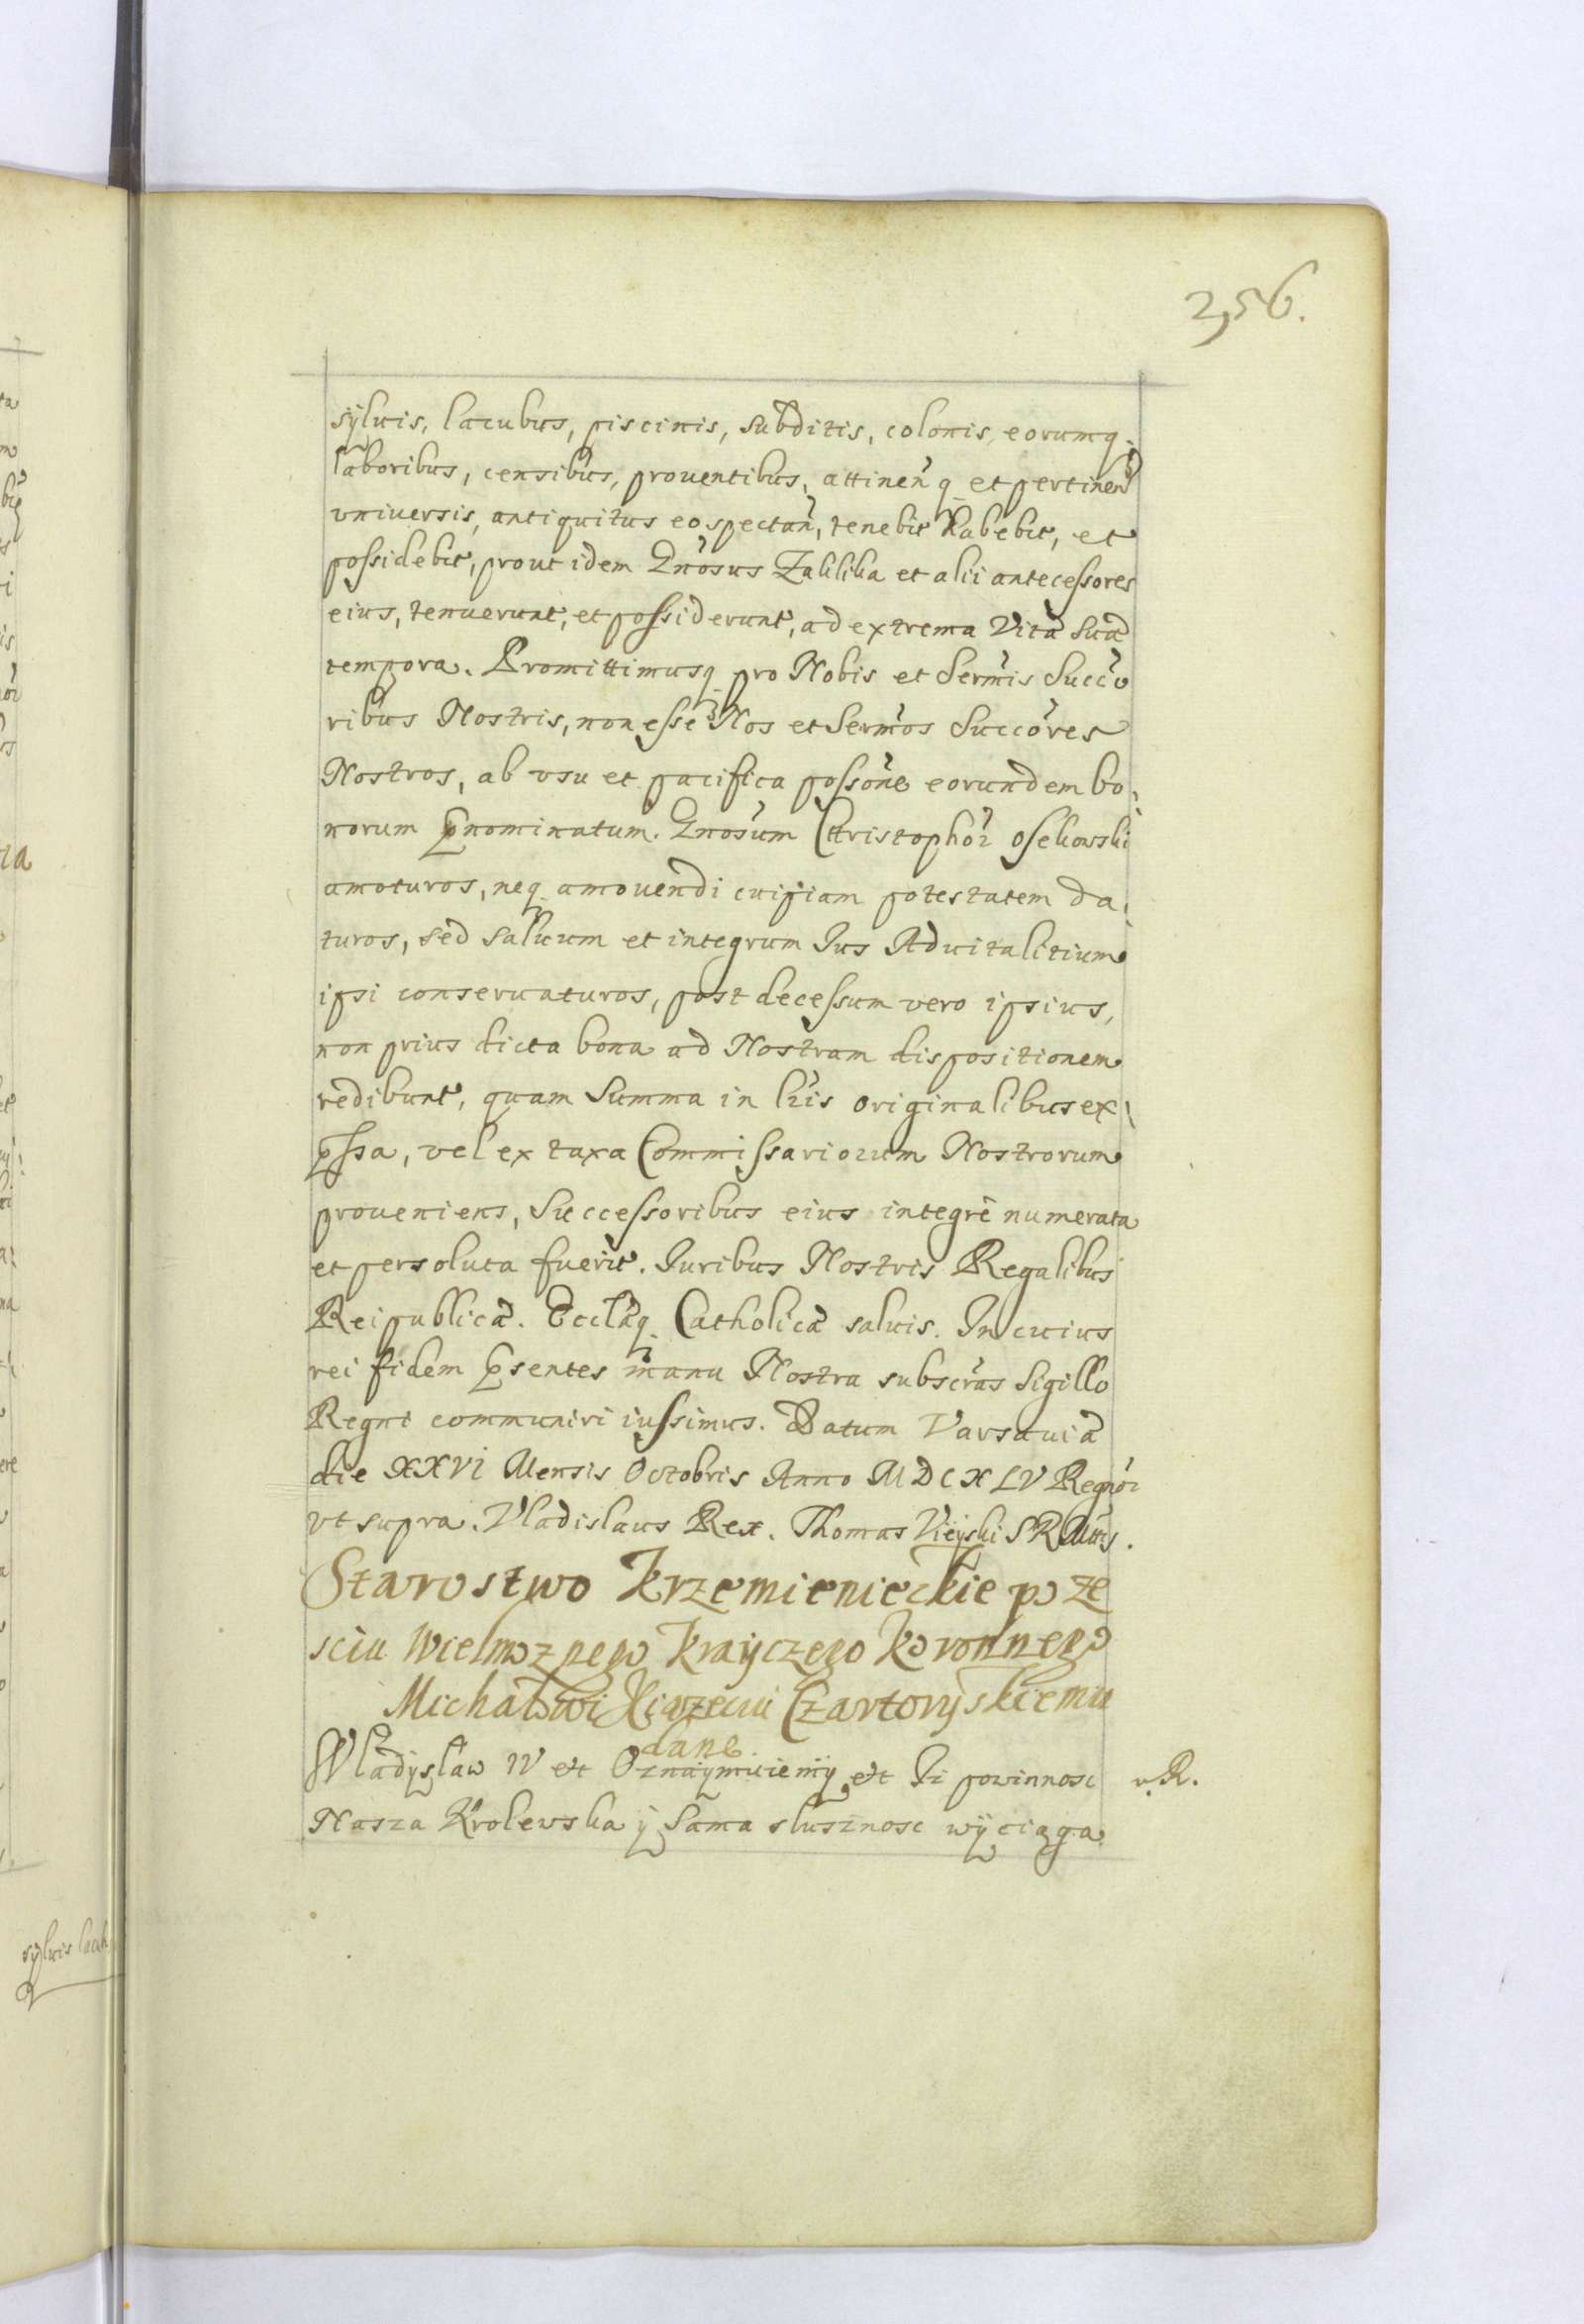 256.
sylvis, lacubus, piscinis, subditis, colonis, eorumq;
laboribus, censibus, prouentibus, attinen̄ q et pertinen̄
vniversis, antiquitus eo spectan̄, tenebit habebit, et
possidebit, prout idem Gn̄osus Zaklika et alii antecessores
eius, tenuerunt, et possiderunt, ad extrema Vitæ Suæ
tempora. Promittimusq pro Nobis et Serm̄is Succo
ribus Nostris, non esse Nos et Serm̄os Succōres
Nostros, ab vsu et pacifica possōne eorundem bo:
norum p̄nominatum. Gnosum Christophor̄ Osekowski
amoturos, neq amouendi cuipiam potestatem da:
turos, sed saluum et integrum Ius Aduitalitium
ipsi conseruaturos, post decessum vero ipsius,
non prius dicta bona ad Nostram dispositionem
redibunt, quam Summa in lr̄is originalibus ex:
p̄ssa, vel ex taxa Commissariorum Nostrorum
proueniens, Successoribus eius integrè numerata
et persoluta fuerit. Iuribus Nostris Regalibus
Reipublicæ. Eccl̄æq Catholicæ saluis. In cuius
rei fidem p̄sentes manu Nostra subscr̄as Sigillo
Regni communiri iussimus. Datum Varsauiæ
die XXVI Mensis Octobris Anno MDCXLV Regnor̄
vt supra. Vladislaus Rex. Thomas Vieyski SRMttis.
Starostwo Krzemienieckie po ze
sciu Wielmoznego Krayczego Koronnego
Michałowi Xiązeciu Czartoryskiemu
dane
Władysław IV etc Oznaymuiemy etc Iz powinnosc
R.
Nasza Krolewska y Sama słusznosc wyciąga
sylvis lacub